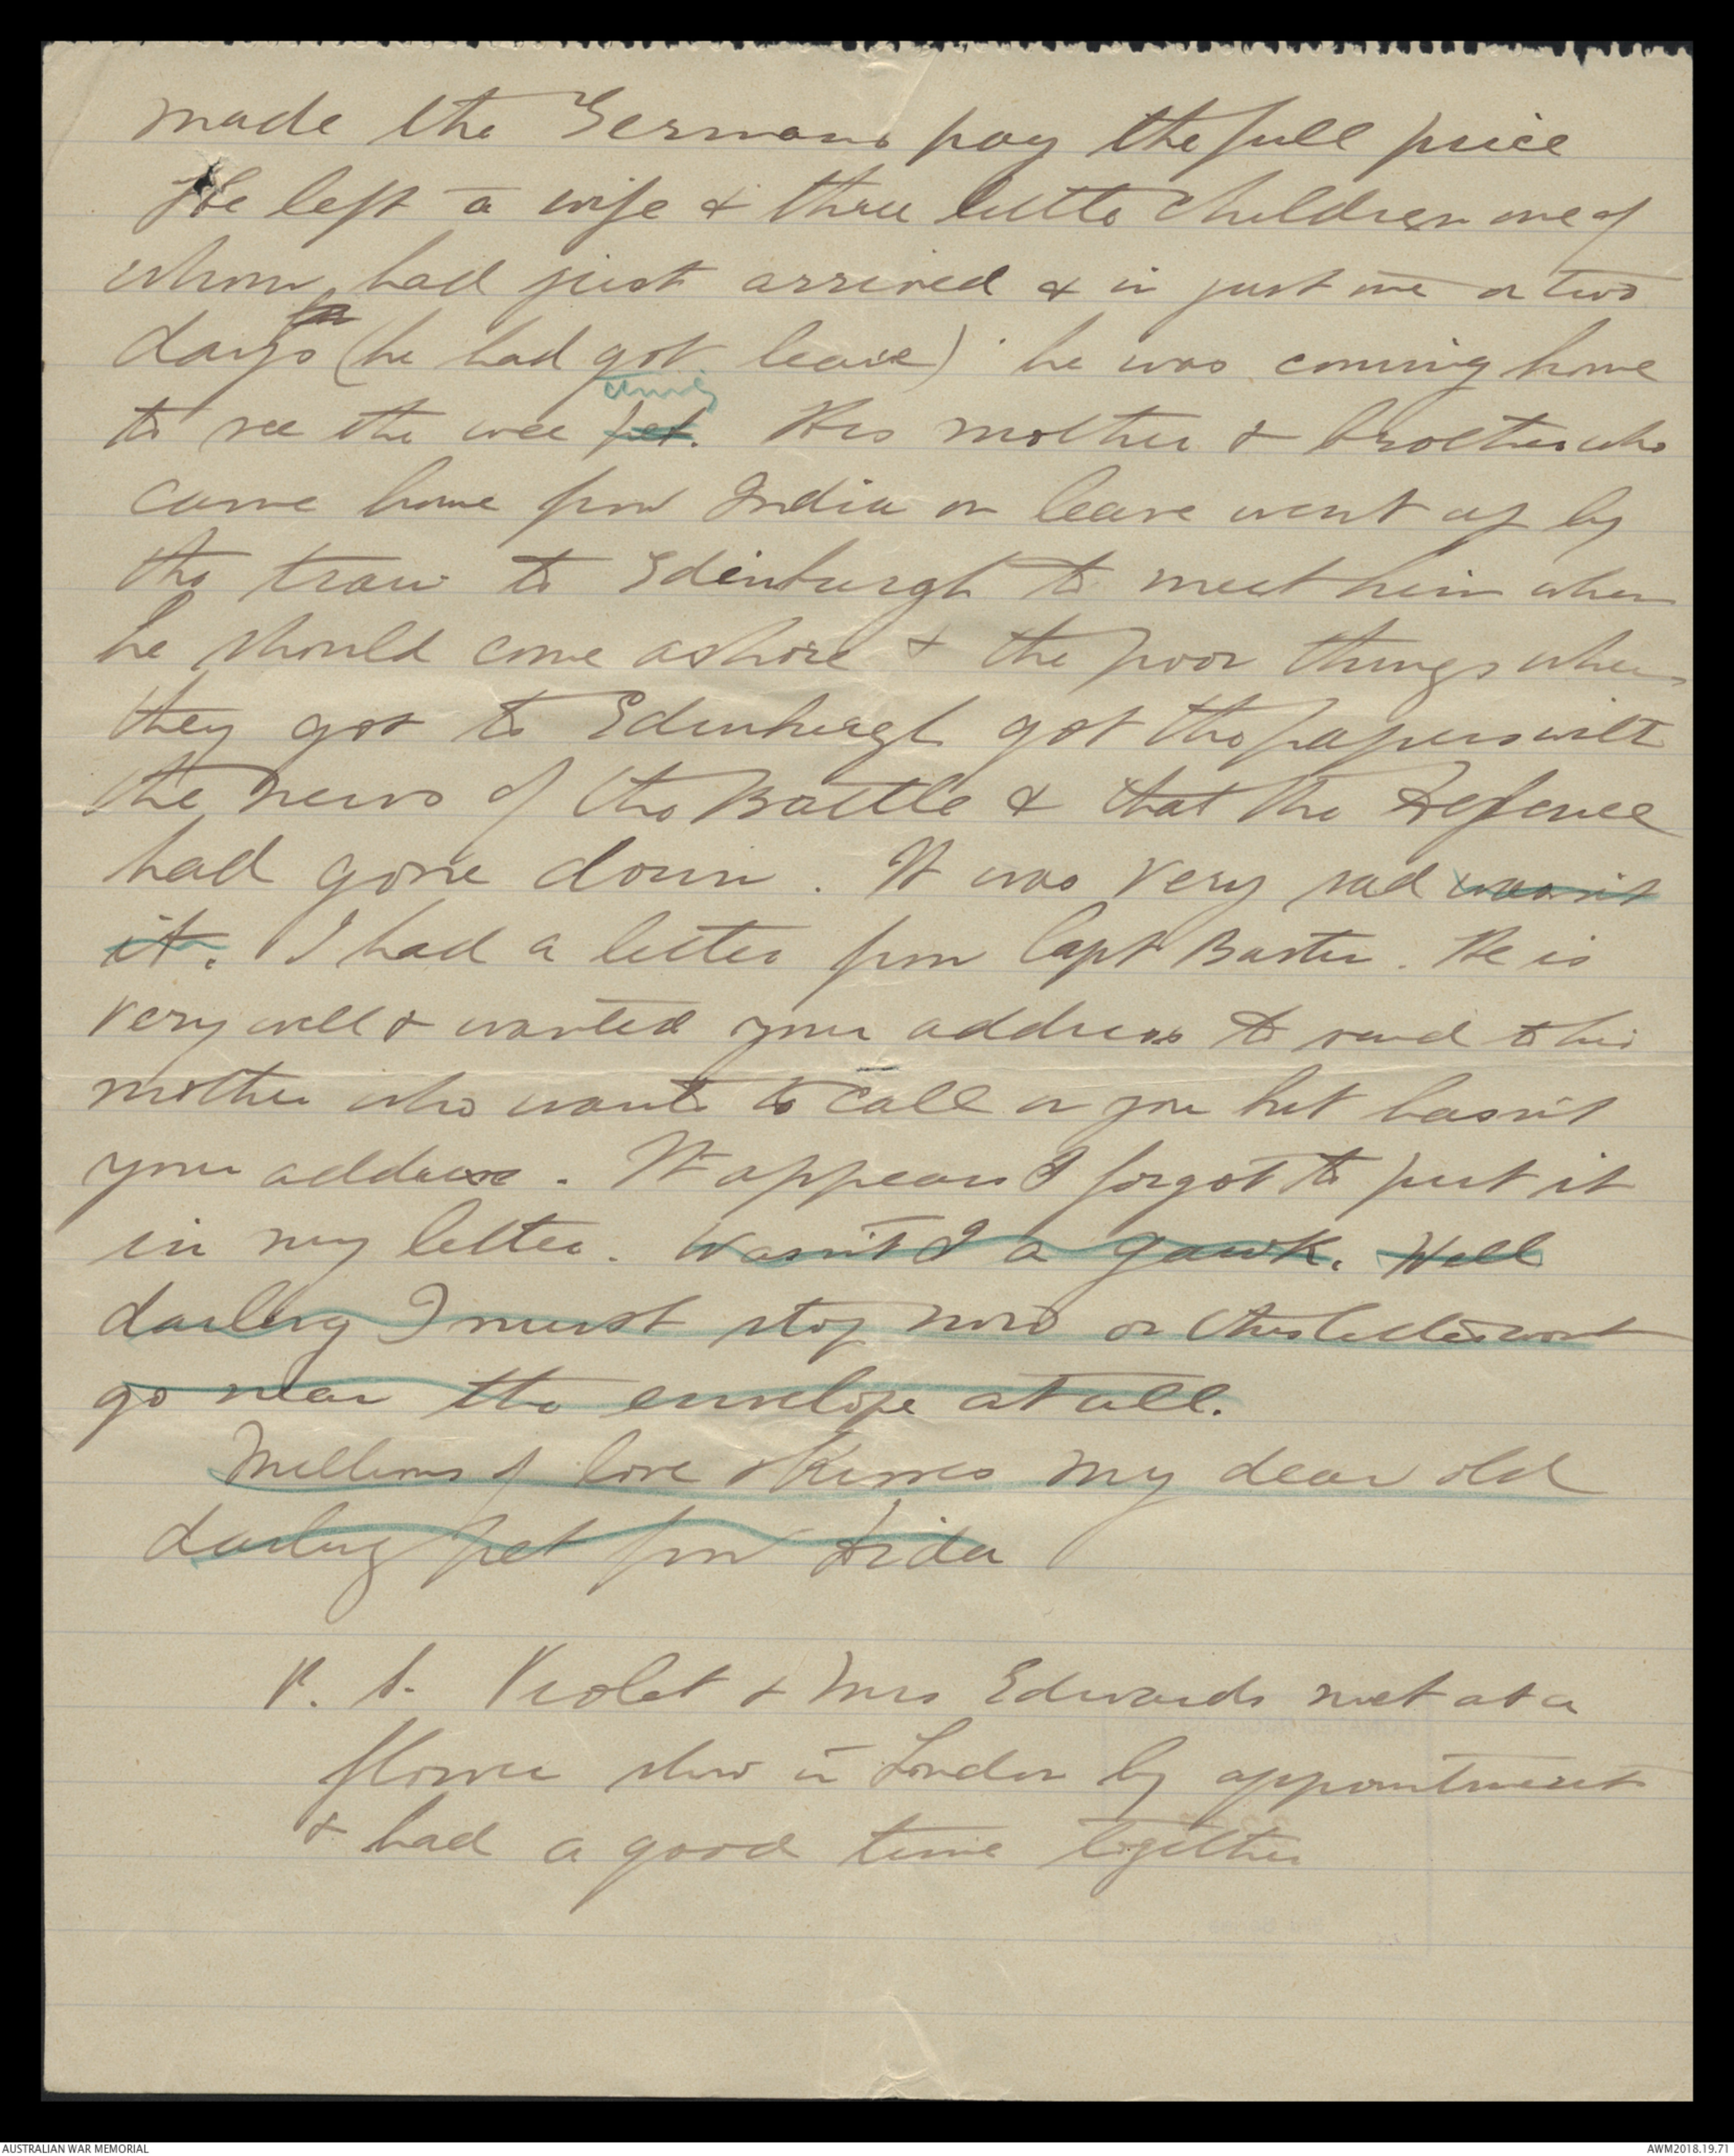 made the Germans pay the full price
He left a wife & three little children one of
whom had just arrived & in just one or two
days (he had got leave) he was coming home
to see the wee pet.
His mother & brother who
came home from India on leave went up by
the train to Edinburgh to meet him when
he should come ashore & the poor things when
they got to Edinburgh got the papers with
the news of the Battle & that the Defence
had gone down. It was very sad wasn't
it. I had a letter from Capt Baxter. He is
very well & wanted your address to send to his
mother who wants to call on you but hasn't
your address. It appears I forgot to put it
in my letter. Wasn't I a gawk. Well
darling I must stop now or this letter wont
go near the envelope at all.
Millions of love & kisses my dear old
darling pet from Dida
P. S. Violet & Mrs Edwards met at a
flower show in London by appointment
& had a good time together
AUSTRALIAN WAR MEMORIAL
AWM2018.19.71